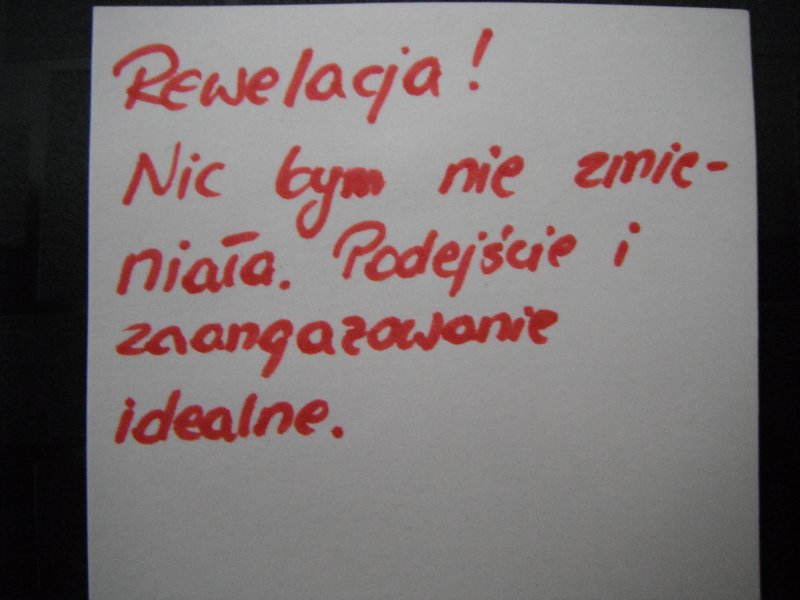 Rewelacja!
Nic bym nie zmie-
niała. Podejście i
zaangazowanie
idealne.